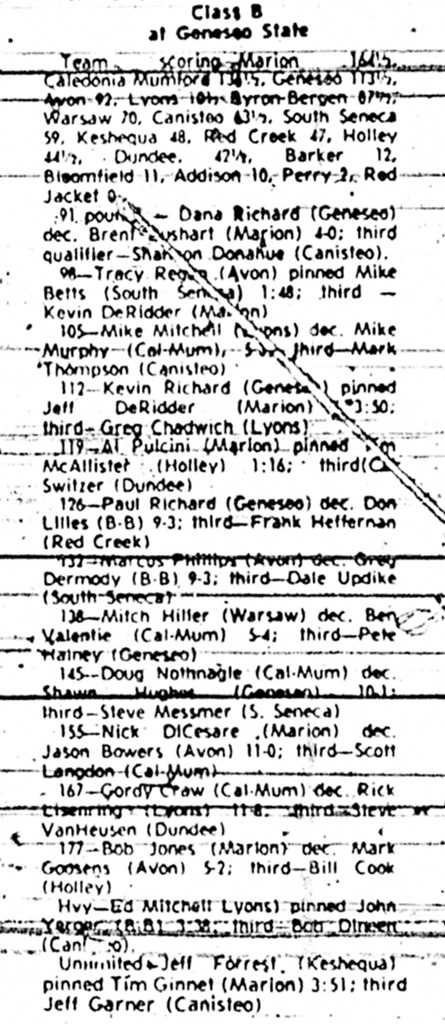 Class B
at Geneseo State
Team scoring—Marion 164½,
Caledonia Mumford 134½, Geneseo 113½,
Avon 92, Lyons Byron-Bergen 87½,
Warsaw 70, Canisteo 63½, South Seneca
59, Keshequa 48, Red Creek 47, Holley
44½, Dundee, 42½, Barker 12,
Bloomfield 11, Addison 10, Perry 2, Red
Jacket 0
91 — Dana Richard (Geneseo)
dec. Brent (Marion) 4-0; third
qualifier—Shannon Donahue (Canisteo).
98—Tracy Regan (Avon) pinned Mike
Betts (South Seneca) 1:48; third —
Kevin DeRidder (Marion)
105—Mike Mitchell (Lyons) dec. Mike
Murphy (Cal-Mum), third—Mark
Thompson (Canisteo)
112—Kevin Richard (Geneseo) pinned
Jeff DeRidder (Marion) 3:50;
third—Greg Chadwich (Lyons)
119—Al Pulcini (Marion) pinned
McAllister (Holley) 1:16; third
Switzer (Dundee)
126—Paul Richard (Geneseo) dec. Don
Lilles (B-B) 9-3; third—Frank Heffernan
(Red Creek)
132—Marcus Phillips (Avon) dec. Greg
Dermody (B-B) 9-3; third—Dale Updike
(South Seneca)
138—Mitch Hiller (Warsaw) dec. Ben
Valentie (Cal-Mum) 5-4; third—Pete
Hainey (Geneseo)
145—Doug Nothnagle (Cal-Mum) dec.
Shawn Hughes (Geneseo) 10-1;
third—Steve Messmer (S. Seneca)
155—Nick DiCesare (Marion) dec.
Jason Bowers (Avon) 11-0; third—Scott
Langdon (Cal-Mum)
167—Gordy Craw (Cal-Mum) dec. Rick
Eisenring (Lyons) 11-8, third—Steve
VanHeusen (Dundee)
177—Bob Jones (Marion) dec. Mark
Goosens (Avon) 5-2; third—Bill Cook
(Holley)
Hvy—Ed Mitchell Lyons) pinned John
Yarger (B-B) 3:38; third—Bob Dineen
(Canisteo).
Unlimited—Jeff Forrest (Keshequa)
pinned Tim Ginnet (Marion) 3:51; third
Jeff Garner (Canisteo)